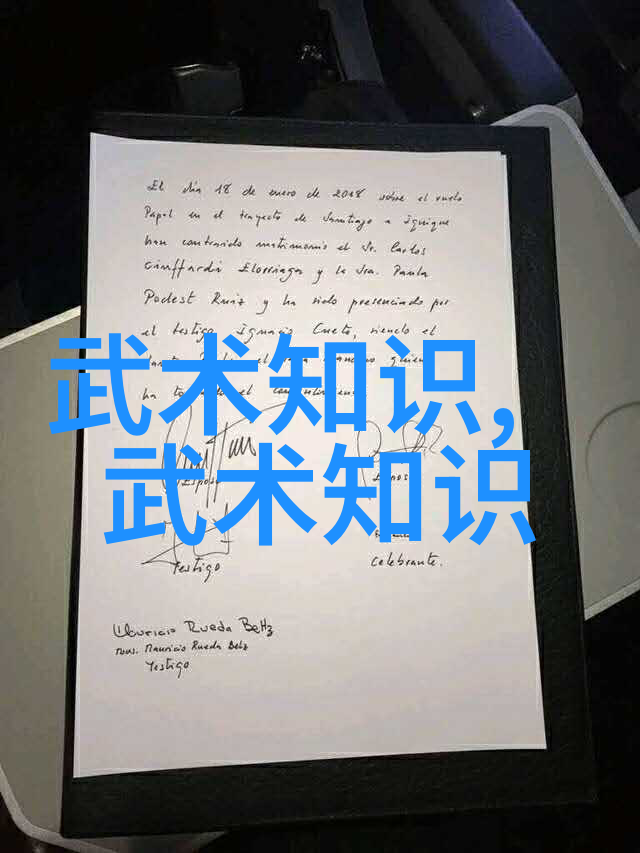 El día 18 de enero de 2018 sobre el vuelo
Papal en el trayecto de Santiago a Iquique
han contraido matrimonio el Sr. Carlos
Ciuffardi Elorriaga y la Sra. Paula
Podest Ruiz y ha sido presenciado por
el testigo Ignacio Cueto, siendo el
quien
ha el
武术知识,
武术知识
Testigo
Celebrante.
Mauricio Rueda Beltz
Mons. Mauricio Rueda Beltz
Testigo